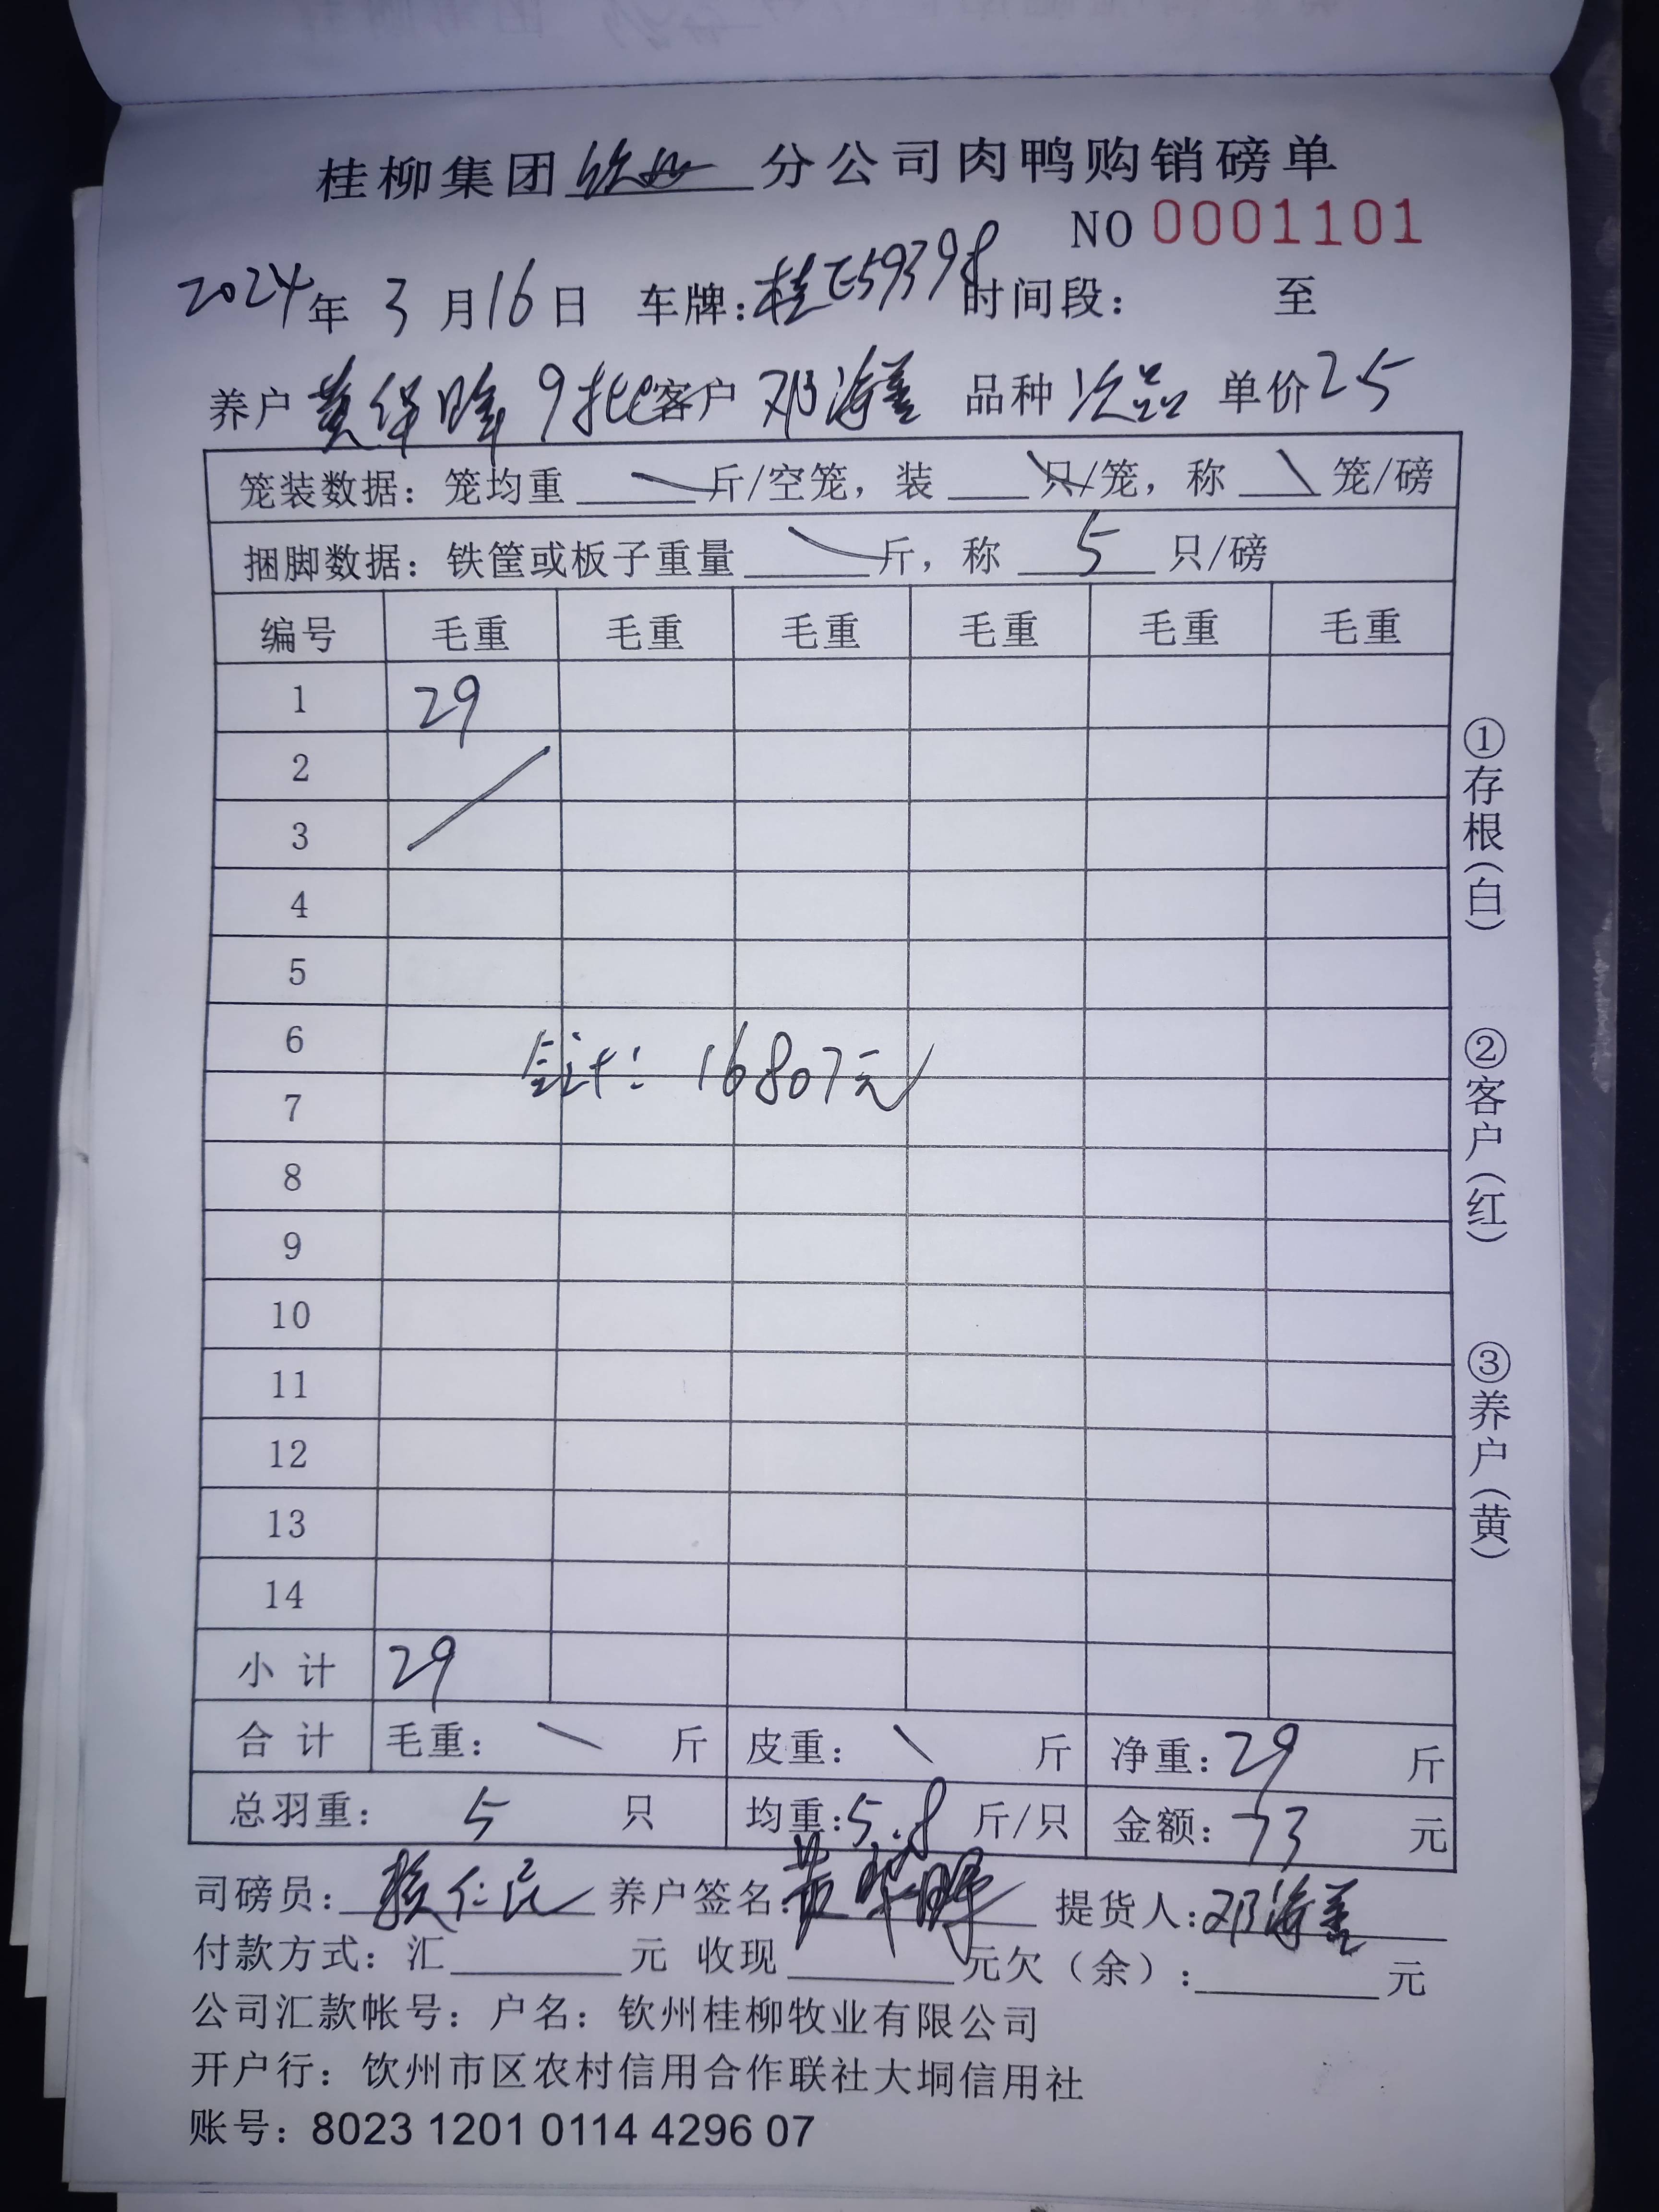 桂柳集团钦州分公司肉鸭购销磅单
NO 0001101
2024年 3月16日 车牌:桂E59398 时间段: 至
养户 黄华晖 9批 客户 邓海 品种 次品 单价 25
笼装数据: 笼均重 斤/空笼, 装 只/笼, 称 笼/磅
捆脚数据: 铁筐或板子重量 斤, 称 5 只/磅
编号 毛重 毛重 毛重 毛重 毛重 毛重
1 29
2
3
4
5
6
总计: 16807元
7
8
9
10
11
12
13
14
小计 29
合计 毛重: 斤 皮重: 斤 净重: 29 斤
总羽重: 5 只 均重: 5.8 斤/只 金额: 73 元
司磅员: 仁 养户签名: 黄华晖 提货人: 邓海
付款方式: 汇 元 收现 元欠(余): 元
公司汇款帐号: 户名: 钦州桂柳牧业有限公司
开户行: 钦州市区农村信用合作联社大垌信用社
账号: 8023 1201 0114 4296 07
①存根(白)
②客户(红)
③养户(黄)